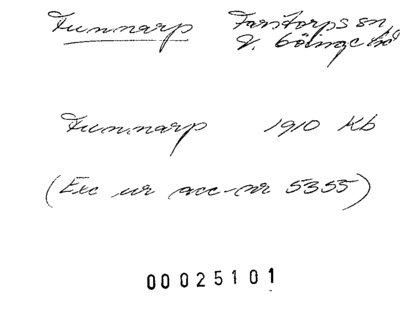 Funnarp Farstorps sn
V. Göinge hd
Funnarp 1910 Kb
(Exc ur acc-nr 5355)
00025101